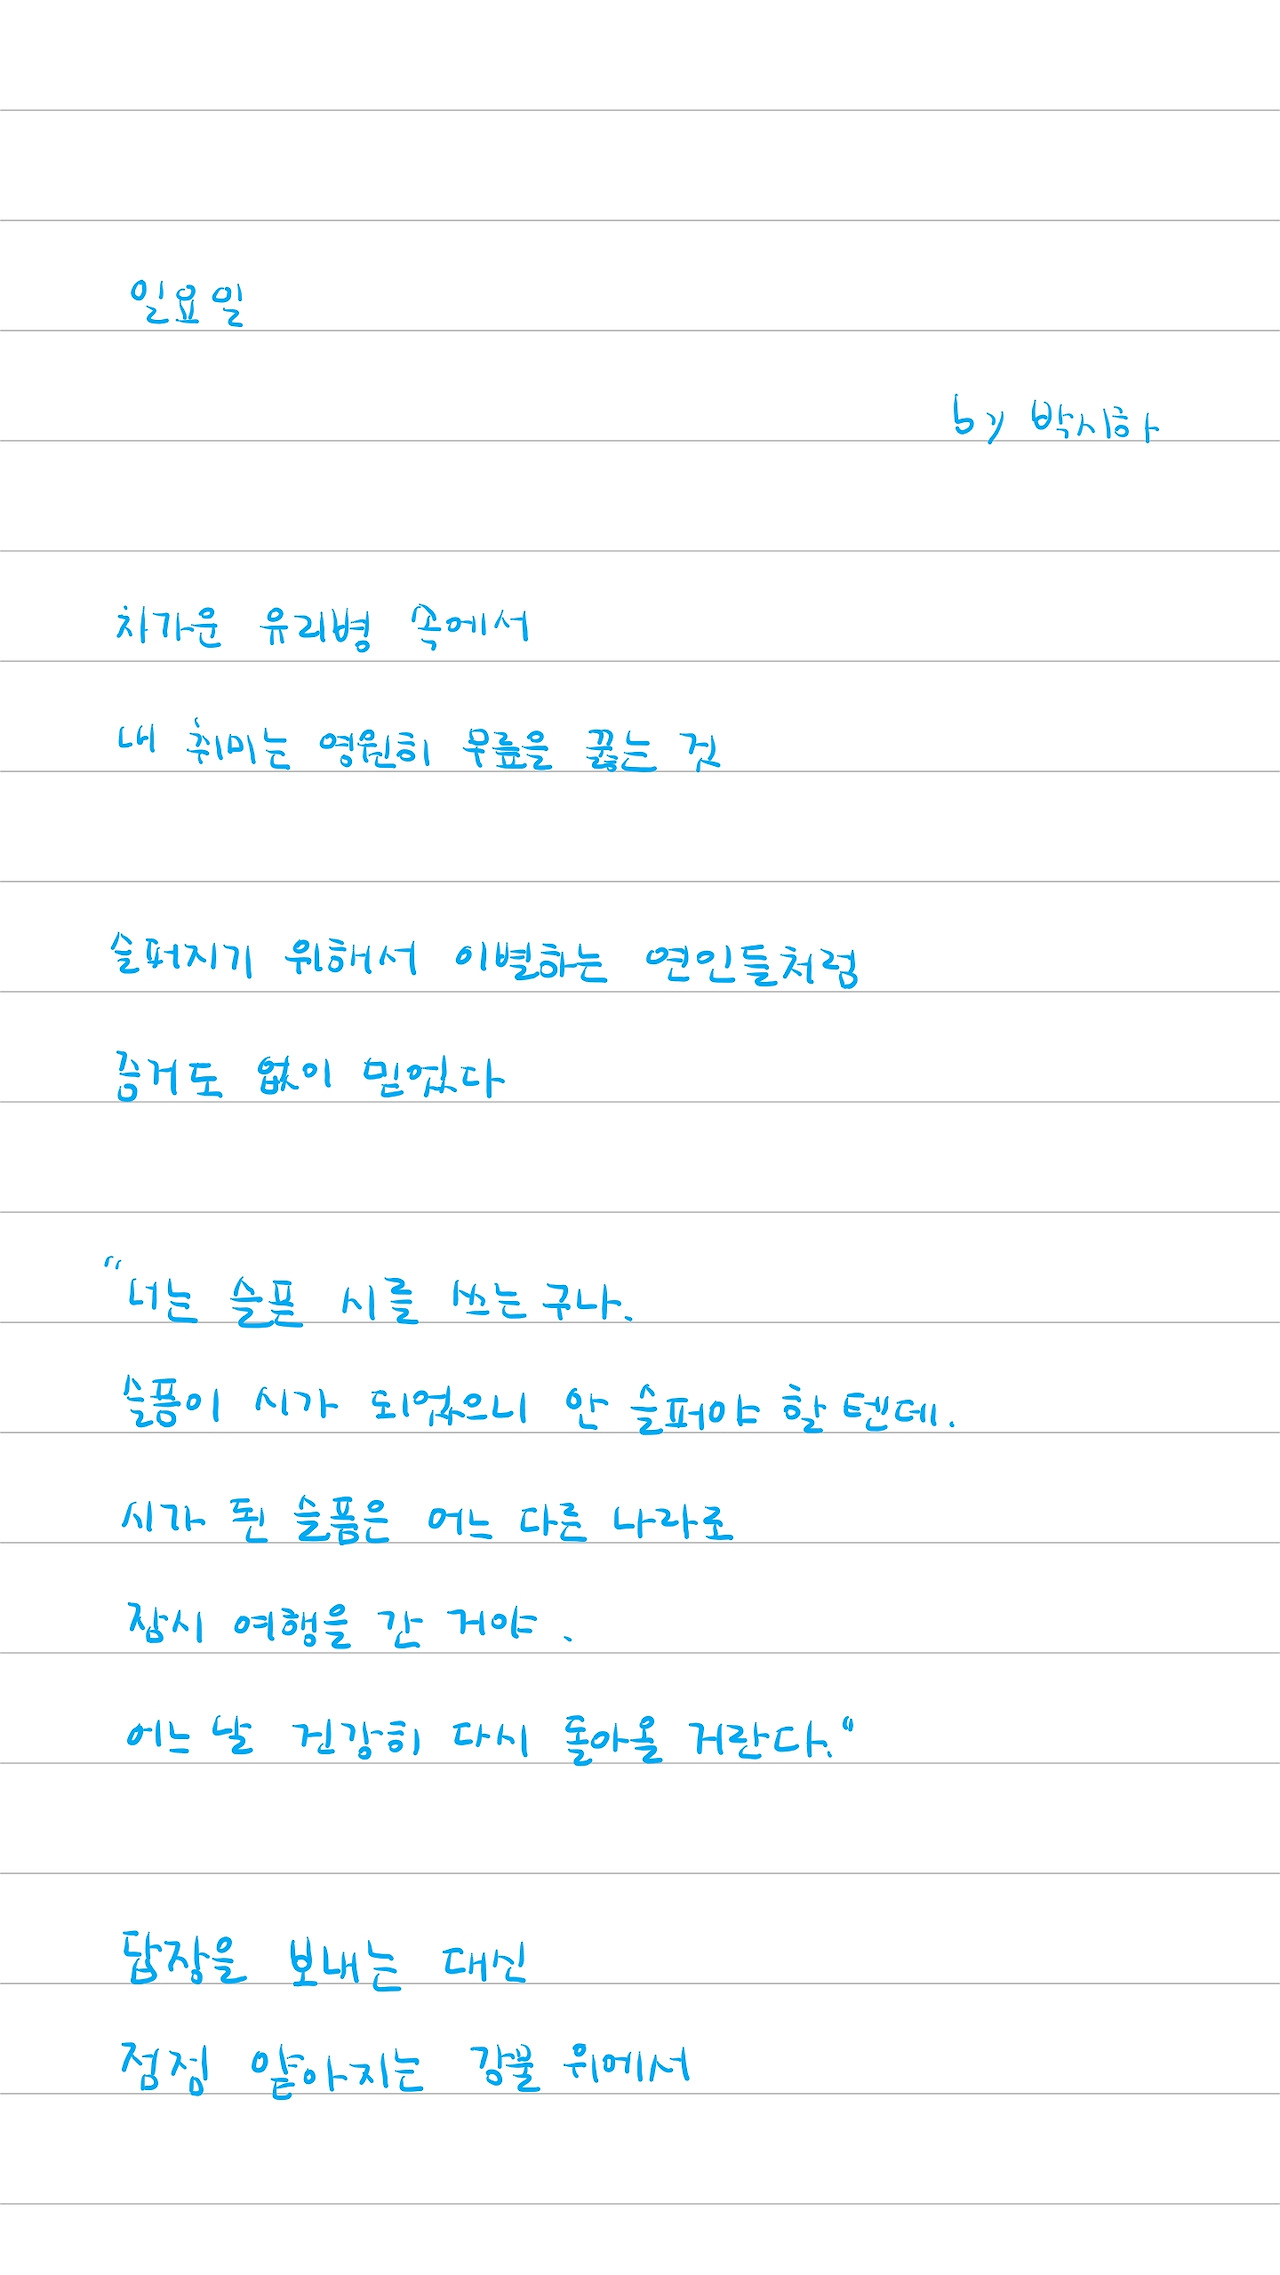 일요일
by 박시하
차가운 유리병 속에서
내 취미는 영원히 무릎을 꿇는 것
슬퍼지기 위해서 이별하는 연인들처럼
증거도 없이 믿었다
"너는 슬픈 시를 쓰는구나.
슬픔이 시가 되었으니 안 슬퍼야 할텐데.
시가 된 슬픔은 어느 다른 나라로
잠시 여행을 간 거야.
어느 날 건강히 다시 돌아올 거란다."
답장을 보내는 대신
점점 얕아지는 강물 위에서